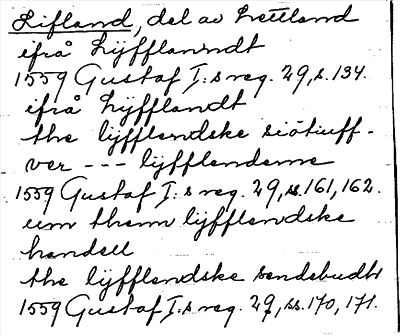 Lifland, del av Lettland
ifrå Lÿfflanndt
1559 Gustaf I:s reg. 29, s. 134.
ifrå Lÿfflandt
the lÿfflendske siötiuff-
ver --- lÿfflenderne
1559 Gustaf I:s reg. 29, ss. 161, 162.
um them lÿfflendske
handell
the lÿfflendske sendebudh
1559 Gustaf I:s reg. 29, ss. 170, 171.